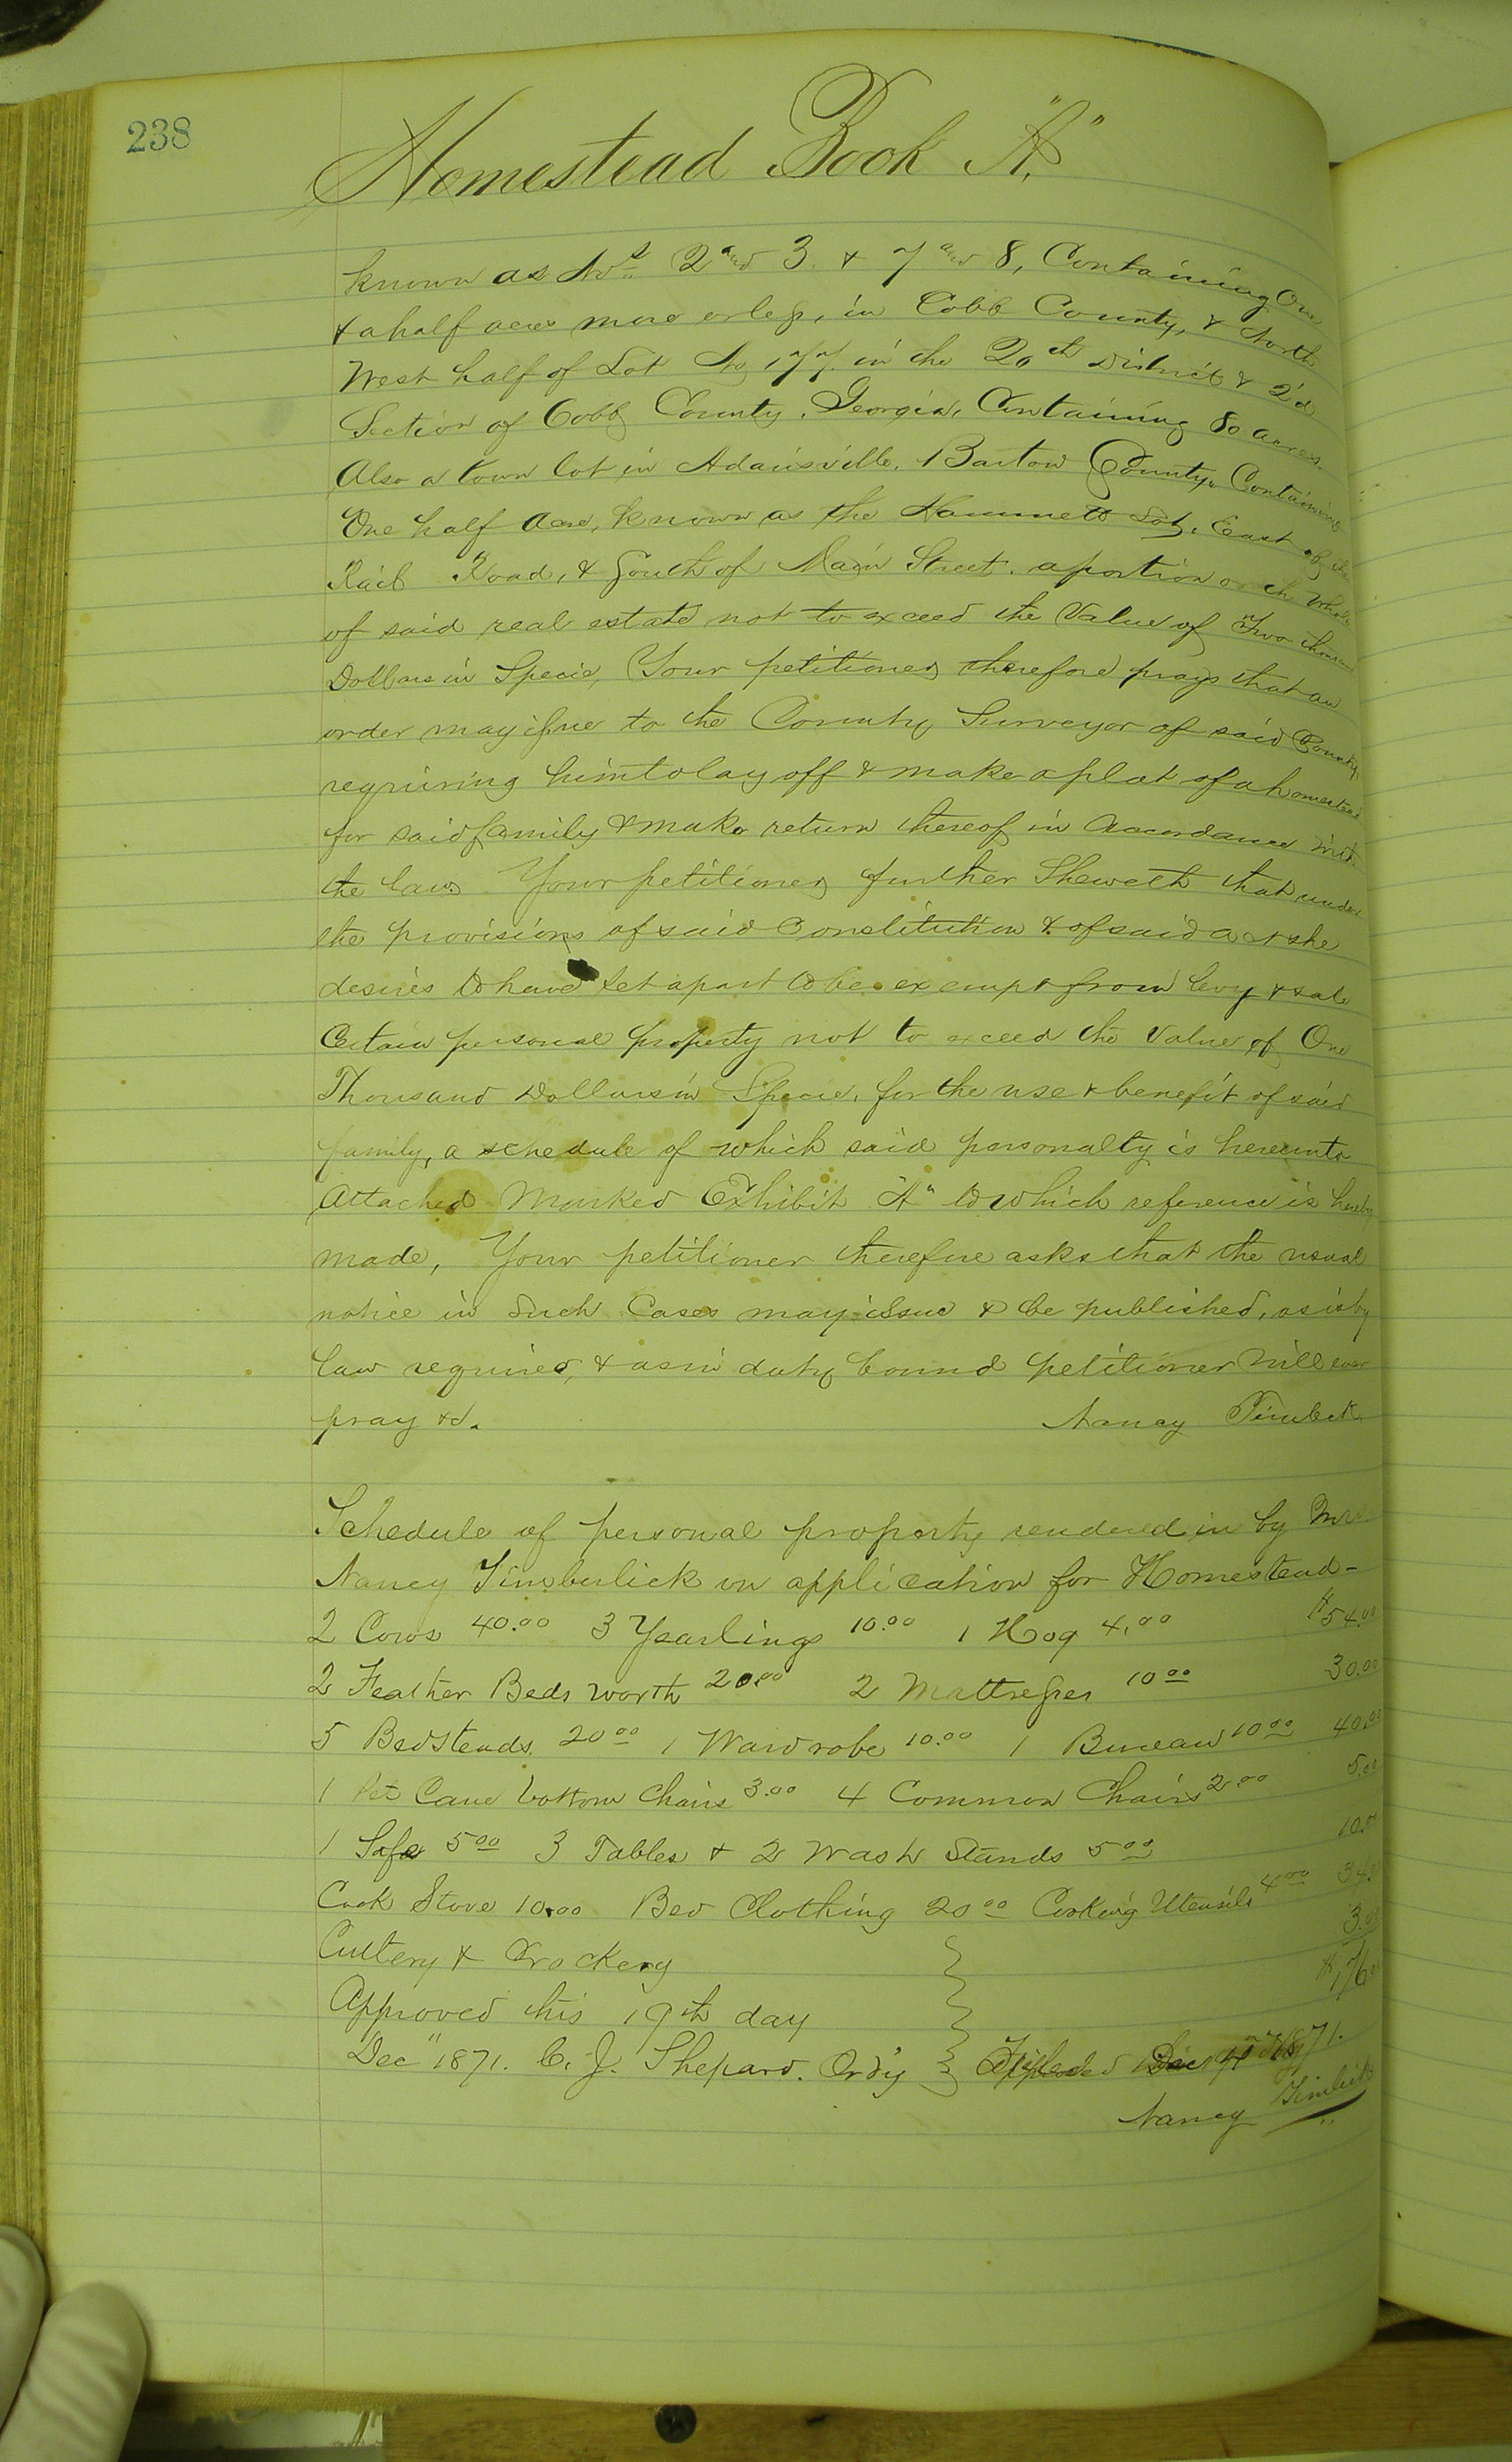 238
Homestead Book "A."
known as Nos. 2 and 3. & 7 and 8, Containing One
& a half acres more or less, in Cobb County, & North
West half of Lot No 177. in the 20th District & 2'd
Section of Cobb County, Georgia, Containing 80 acres.
Also a town lot in Adairsville, Bartow County, Containing
One half Acre, known as the Hammett Lot, East of the
Rail Road, & South of Main Street. a portion or the whole
of said real estate not to exceed the Value of Two thousand
Dollars in Specie, Your petitioner therefore prays that an
order may issue to the County Surveyor of said County
requiring him to lay off & make a plat of a homestead
for said family & make return thereof in Accordance with
the law. Your petitioner further Sheweth that under
the provisions of said Constitution & of said act she
desires to have set apart to be exempt from levy & sale
Certain personal property not to exceed the Value of One
Thousand Dollars in Specie, for the use & benefit of said
family, a schedule of which said personalty is hereunto
Attached Marked Exhibit "A" to which reference is hereby
made, Your petitioner therefore asks that the usual
notice in Such Cases may issue & be published, as is by
law required, & as in duty bound petitioner will ever
pray &c. Nancy Timbelk.
Schedule of personal property rendered in by Mrs
Nancy Timberlick on application for Homestead -
2 Cows 40.00 3 Yearlings 10.00 1 Hog 4.00 $54.00
2 Feather Beds worth 20.00 2 Mattresses 10 00 30.00
5 Bedsteads. 20 00 1 Wardrobe 10.00 1 Bureau 10 00 40.00
1 Set Cane bottom Chairs 3.00 4 Common Chairs 2 00 5.00
1 Safe 5 00 3 Tables & 2 Wash Stands 5 00 10.00
Cook Stove 10.00 Bed Clothing 20 00 Cooking Utensils 4 00 34.
Cutlery & Crockery 3.00
Approved this 19th day $176
Dec" 1871. C. J. Shepard. Ord'y Dec 1871.
Nancy